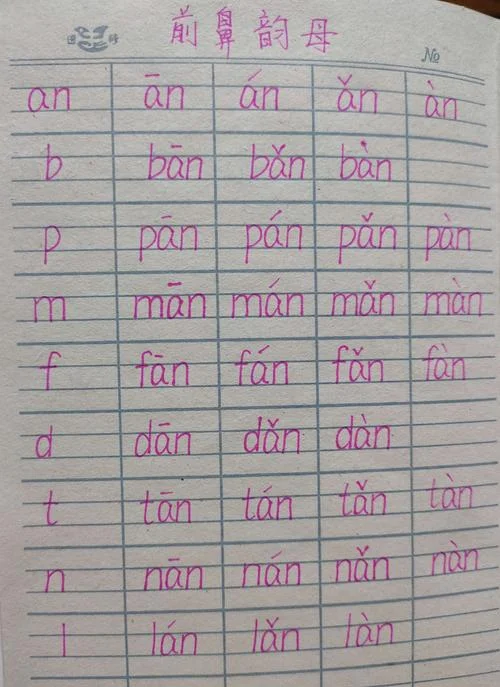 前鼻韵母
№
an ān án ǎn àn
b bān bǎn bàn
p pān pán pǎn pàn
m mān mán mǎn màn
f fān fán fǎn fàn
d dān dǎn dàn
t tān tán tǎn tàn
n nān nán nǎn nàn
l lán lǎn làn